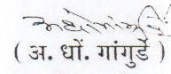 ( अ. धों. गांगुर्डे )